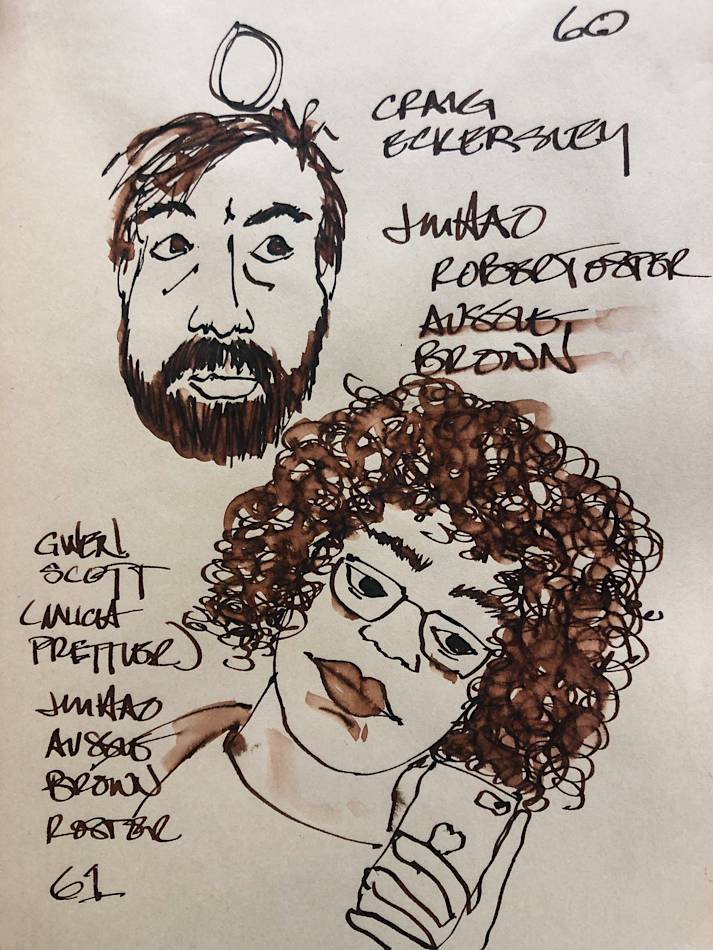 60
CRAIG
ECKERSLEY
JINHAO
ROBERT OSTER
AUSSIE
BROWN
GWEN
SCOTT
(MUCH
PRETTIER)
JINHAO
AUSSIE
BROWN
ROSTER
61